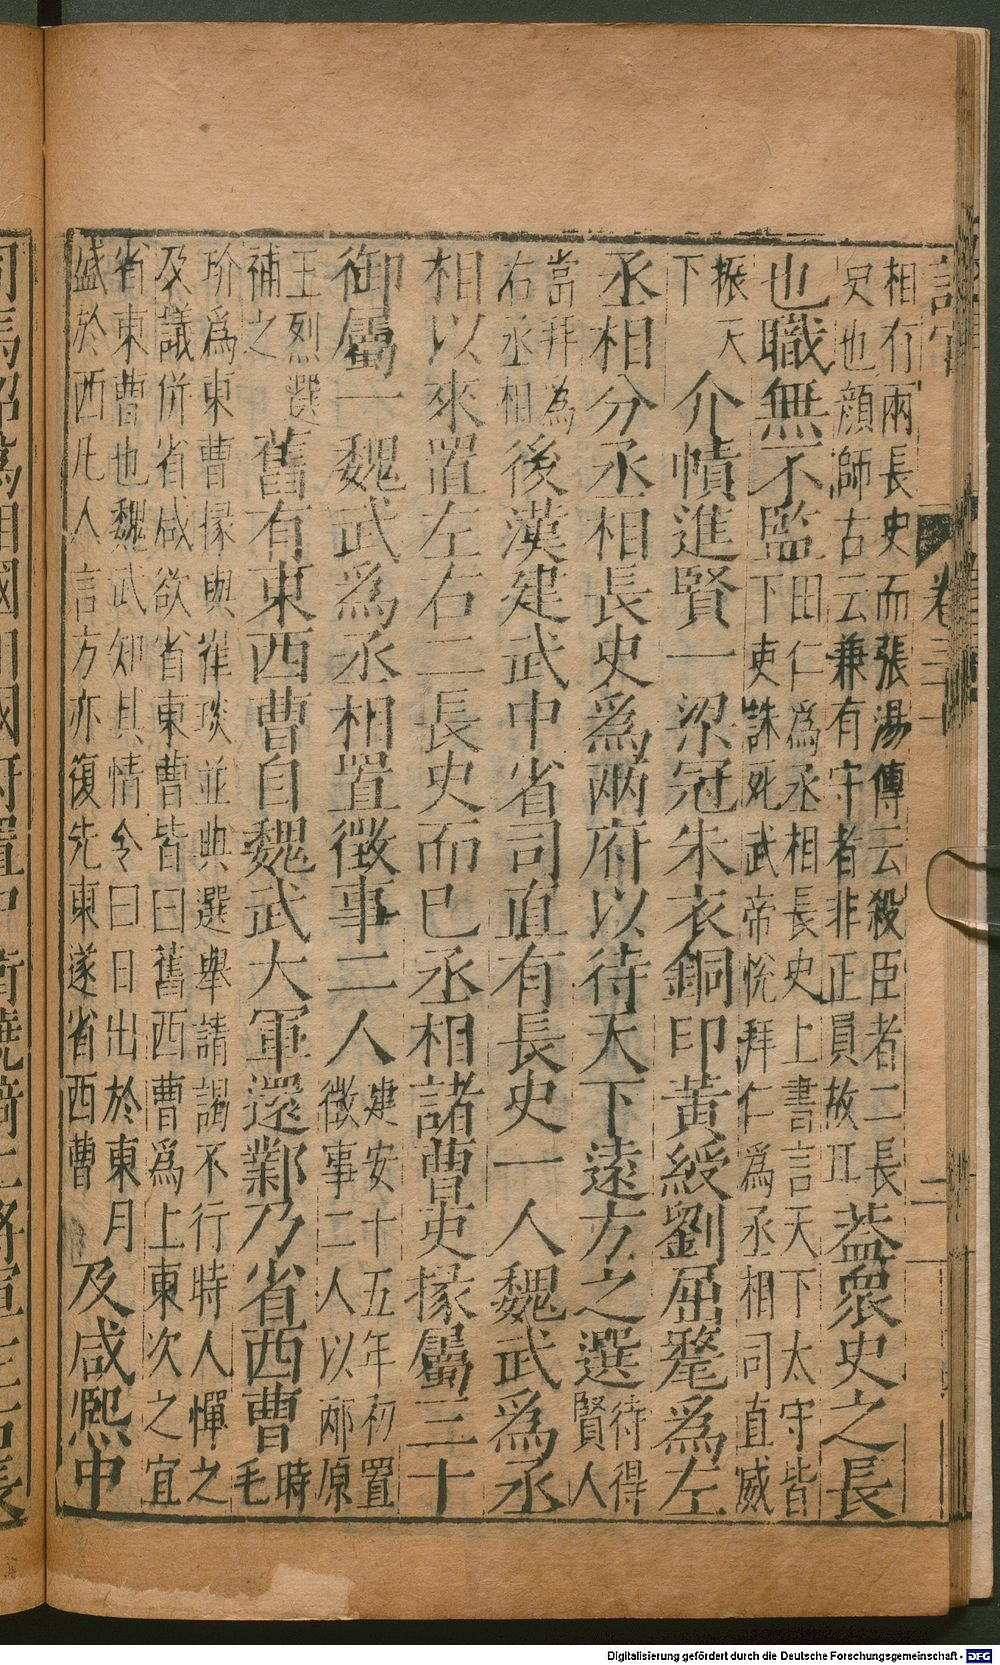 卷二十
二
相有兩長史而張湯傳云殺臣者二長
史也顏師古云兼有守者非正員故耳
蓋衆史之長
也職無不監
田仁爲丞相長史上書言天下太守皆
下吏誅死武帝悅拜仁爲丞相司直威
振天
下
介幘進賢一梁冠朱衣銅印黃綬劉屈氂爲左
丞相分丞相長史爲兩府以待天下遠方之選
待得
賢人
當拜爲
右丞相
後漢建武中省司直有長史一人魏武爲丞
相以來置左右二長史而已丞相諸曹吏掾屬三十
御屬一魏武爲丞相置徵事二人
建安十五年初置
徵事二人以邴原
王烈選
補之
舊有東西曹自魏武大軍還鄴乃省西曹
時
毛
玠爲東曹掾與崔琰並典選舉請謁不行時人憚之
及議併省咸欲省東曹皆曰舊西曹爲上東次之宜
省東曹也魏武知其情令曰日出於東月
盛於西凡人言方亦復先東遂省西曹
及咸熙中
Digitalisierung gefördert durch die Deutsche Forschungsgemeinschaft - DFG